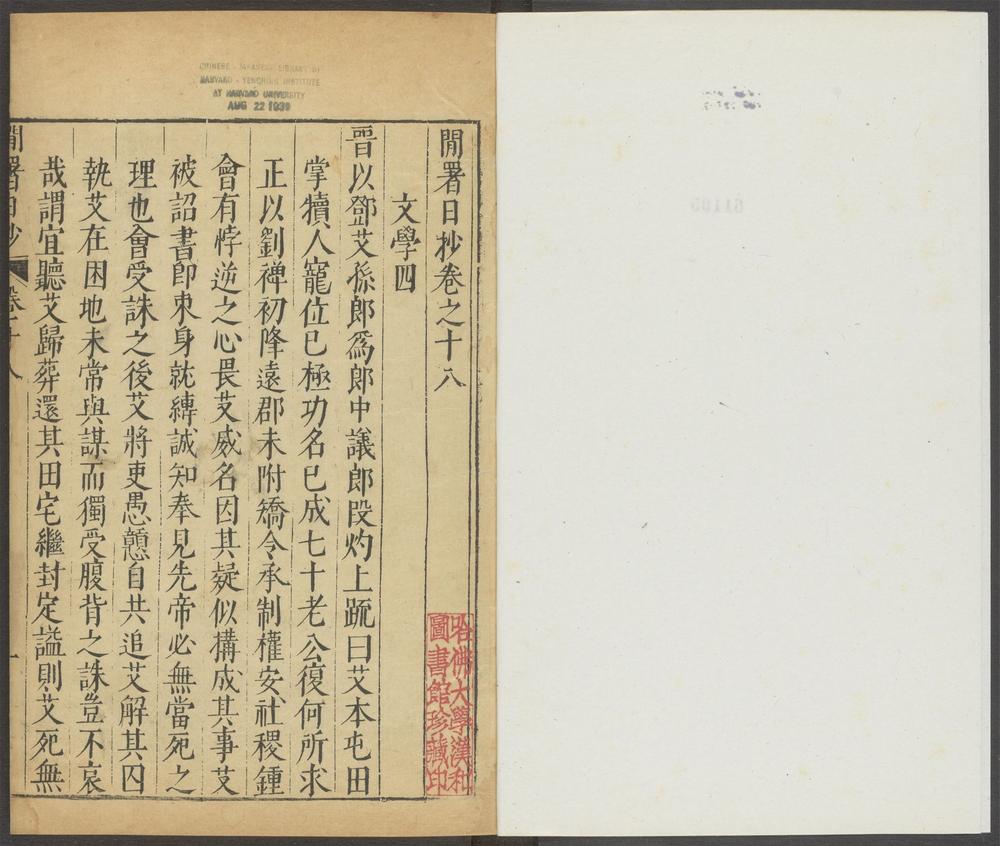 CHINESE - JAPANESE LIBRARY OF
HARVARD - YENCHING INSTITUTE
AT HARVARD UNIVERSITY
AUG 22 1939
閒署日抄卷之十八
哈佛大學漢和
圖書館珍藏印
文學四
晉以鄧艾孫郎爲郎中議郎段灼上疏曰艾本屯田
掌犢人寵位已極功名已成七十老公復何所求
正以劉禪初降遠郡未附矯令承制權安社稷鍾
會有悖逆之心畏艾威名因其疑似搆成其事艾
被詔書卽束身就縛誠知奉見先帝必無當死之
理也會受誅之後艾將吏愚戇自共追艾解其囚
執艾在困地未常與謀而獨受腹背之誅豈不哀
哉謂宜聽艾歸葬還其田宅繼封定謚則艾死無
閒署日抄 卷之十八 一
61105